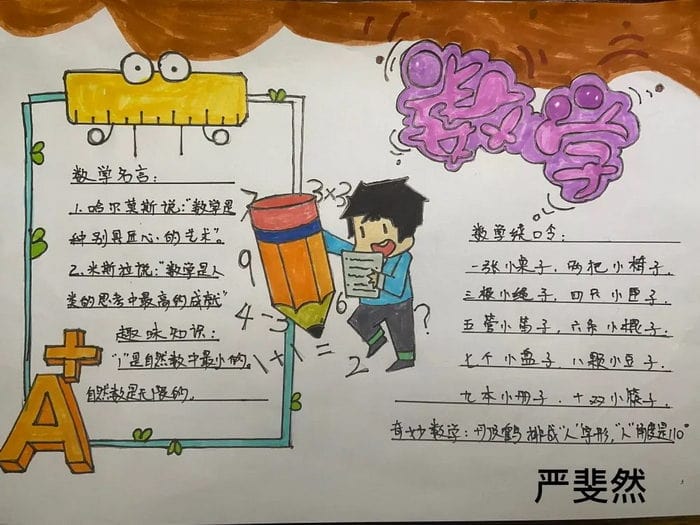 数学
数学名言：
1.哈尔莫斯说："数学是
种别具匠心的艺术"。
2.米斯拉说："数学是人
类的思考中最高的成就"
趣味知识：
"1"是自然数中最小的。
自然数是无限的。
A+
3×3
9
4-3
1+1=
6
2
?
数学绕口令：
一张小桌子，两把小椅子，
三根小绳子，四只小匣子，
五管小笛子，六条小棍子，
七个小盘子，八颗小豆子，
九本小册子，十双小筷子，
奇妙数学：丹顶鹤排成"人"字形，"人"角度是110°
严斐然